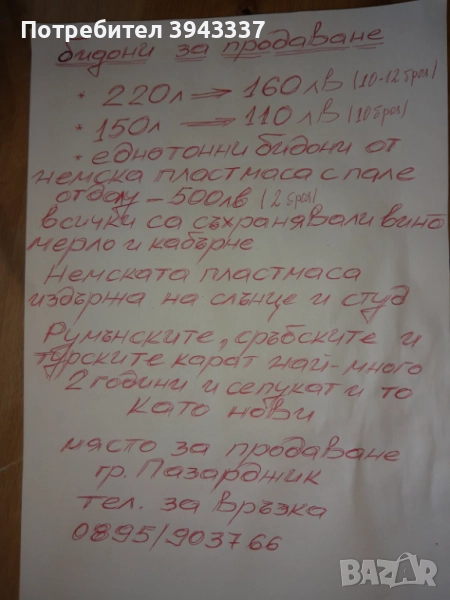 Потребител 3943337
бидони за продаване
* 220л → 160лв (10-12 броя)
* 150л → 110лв (10 броя)
* еднотонни бидони от
немска пластмаса с пале
отдолу - 500лв (2 броя)
всички са съхранявали вино
мерло и каберне
Немската пластмаса
издържа на слънце и студ
Румънските, сръбските и
турските карат най-много
2 години и се пукат и то
като нови
място за продаване
гр. Пазарджик
тел. за връзка
0895/903766
BAZAR